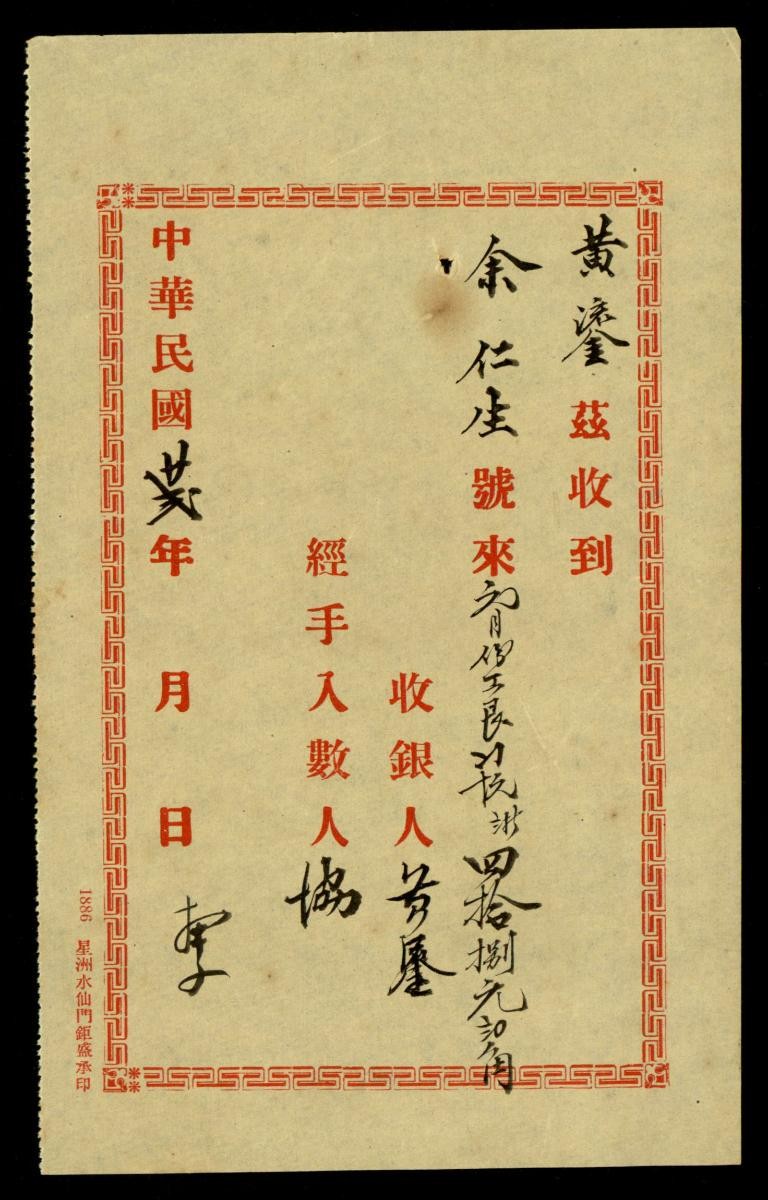 黃鎏茲收到
余仁生號來 月份工艮 四拾捌元 角
收銀人黃
經手入數人協
中華民國廿弍年 月 日
1886 星洲水仙門鉅盛承印